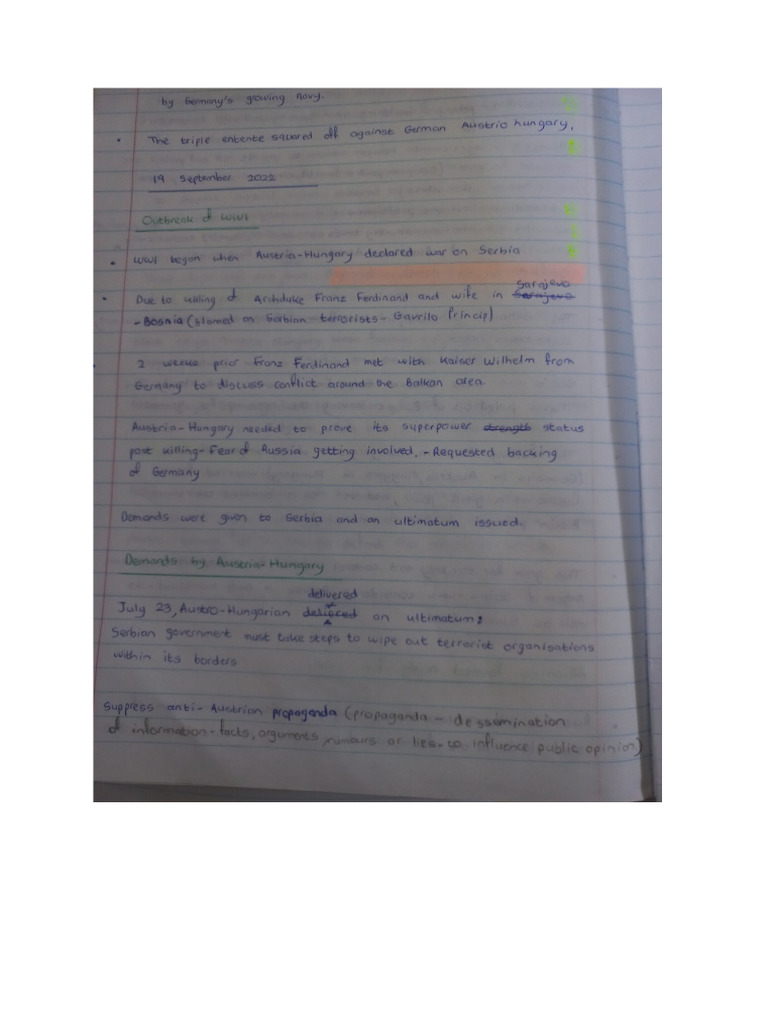 by Germany's growing navy.
• The triple entente squared off against German Austrio hungary,
19 September 2022
Outbreak of WW1
• WW1 began when Austria-Hungary declared war on Serbia
• Due to killing of Archduke Franz Ferdinand and wife in Sarajevo
- Bosnia (blamed on Serbian terrorists - Gavrilo Princip)
2 weeks prior Franz Ferdinand met with Kaiser Wilhelm from
Germany to discuss conflict around the Balkan area.
Austria-Hungary needed to prove its superpower strength status
post killing - Fear of Russia getting involved, - Requested backing
of Germany
Demands were given to Serbia and an ultimatum issued.
Demands by Austria-Hungary
delivered
July 23, Austro-Hungarian an ultimatum:
Serbian government must take steps to wipe out terrorist organisations
within its borders
Suppress anti-Austrian propaganda (propaganda - dessimination
of information - facts, arguments, rumours or lies - to influence public opinion)